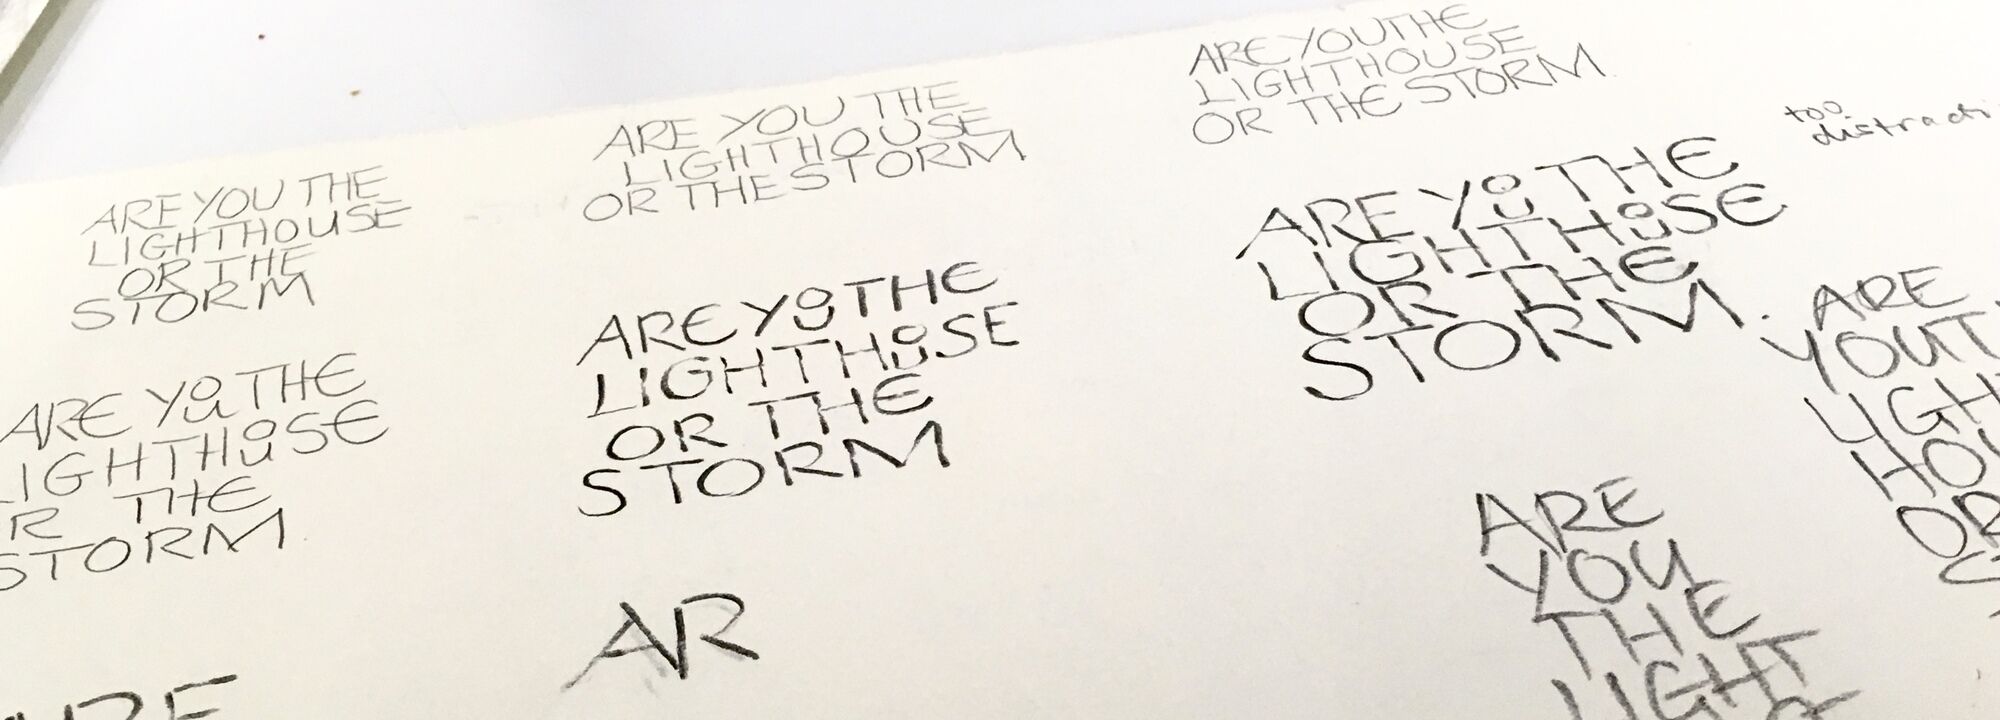 ARE YOU THE
LIGHTHOUSE
OR THE
STORM
ARE YOU THE
LIGHTHOUSE
OR THE STORM
ARE YOU THE
LIGHTHOUSE
OR THE STORM.
too
ARE YOU THE
LIGHTHOUSE
OR THE
STORM
ARE YOU THE
LIGHTHOUSE
OR THE
STORM
ARE YOU THE
LIGHTHOUSE
OR THE
STORM.
ARE
YOU T
LIGH
HOU
OR
S
AR
ARE
YOU
THE
LIGHT